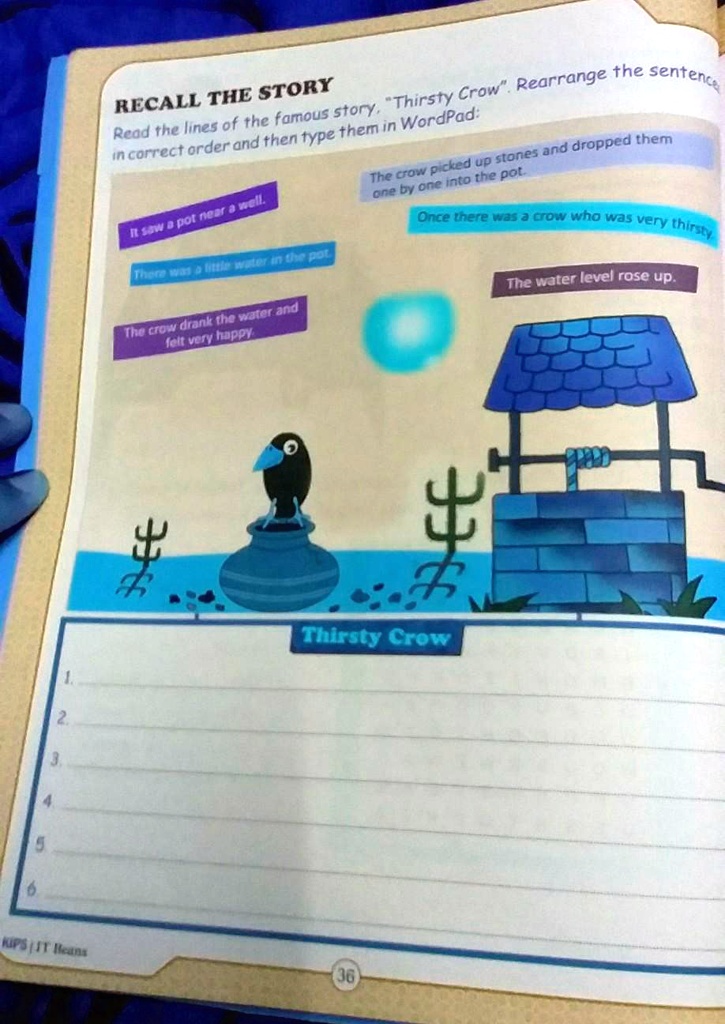 RECALL THE STORY
Read the lines of the famous story, "Thirsty Crow". Rearrange the sentence
in correct order and then type them in WordPad:
The crow picked up stones and dropped them
one by one into the pot.
It saw a pot near a well.
Once there was a crow who was very thirsty.
There was a little water in the pot.
The water level rose up.
The crow drank the water and
felt very happy.
Thirsty Crow
1.
2.
3.
4.
5.
6.
KIPS | IT Beans
36